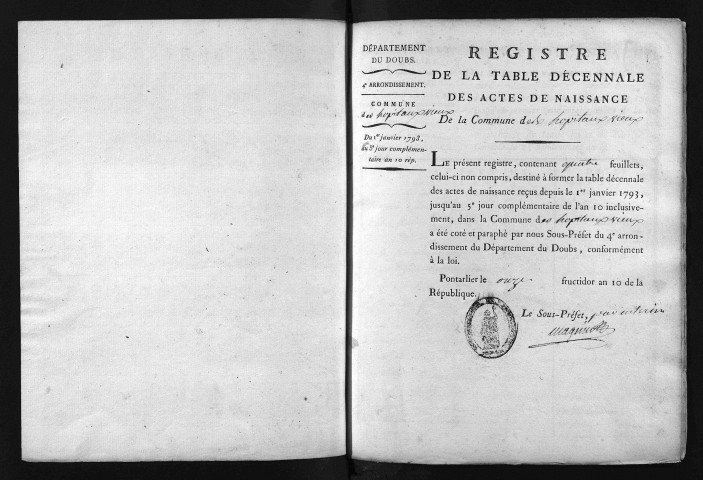 DÉPARTEMENT
DU DOUBS.
4e ARRONDISSEMENT.
COMMUNE
des hopitaux vieux
Du 1er janvier 1793,
au 5e jour complémen-
taire an 10 rép.
REGISTRE
DE LA TABLE DÉCENNALE
DES ACTES DE NAISSANCE
De la Commune des hopitaux vieux
LE présent registre, contenant quatre feuillets,
celui-ci non compris, destiné à former la table décennale
des actes de naissance reçus depuis le 1er janvier 1793,
jusqu'au 5e jour complémentaire de l'an 10 inclusive-
ment, dans la Commune des hopitaux vieux
a été coté et paraphé par nous Sous-Préfet du 4e arron-
dissement du Département du Doubs, conformément
à la loi.
Pontarlier le onze fructidor an 10 de la
République.
Le Sous-Préfet, par interim